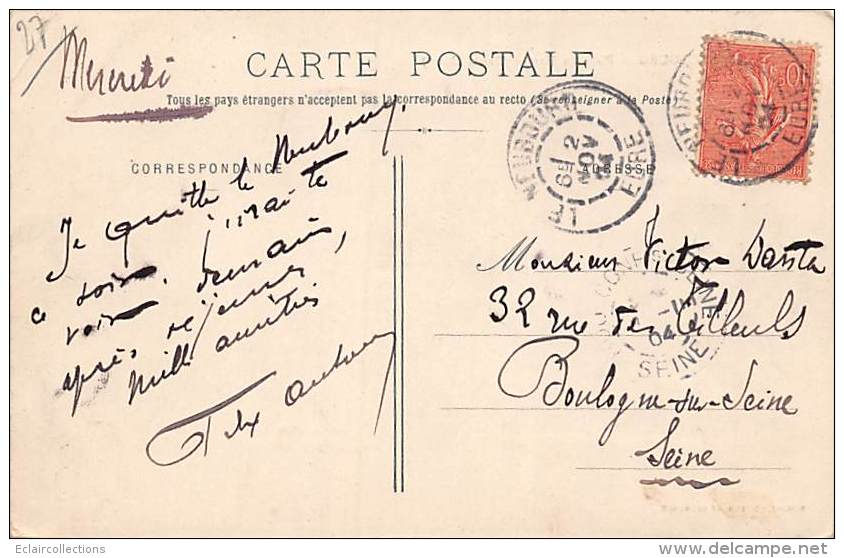 27
Mercredi
CARTE POSTALE
Tous les pays étrangers n'acceptent pas la correspondance au recto (Se renseigner à la Poste)
CORRESPONDANCE
ADRESSE
Je quitte le Neubourg
ce soir. J'irai te
voir demain,
après déjeuner
Mille amitiés
LE NEUBOURG
6E 2
NOV
04
EURE
LE NEUBOURG
EURE
Monsieur Victor Dasta
32 rue des Tilleuls
Boulogne-sur-Seine
Seine
04
SEINE
SEINE
Eclaircollections
delcampe.net